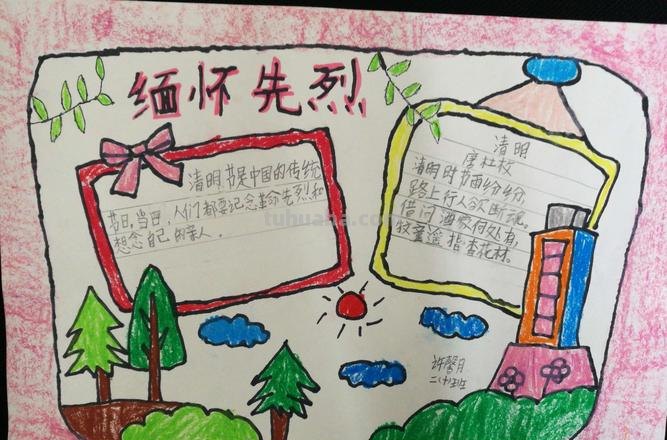 缅怀先烈
清明节是中国的传统
节日,当日,人们都要纪念革命先烈和
想念自己的亲人.
清明
唐杜牧
清明时节雨纷纷,
路上行人欲断魂,
借问酒家何处有,
牧童遥指杏花村.
许馨月
tuhuaba.com